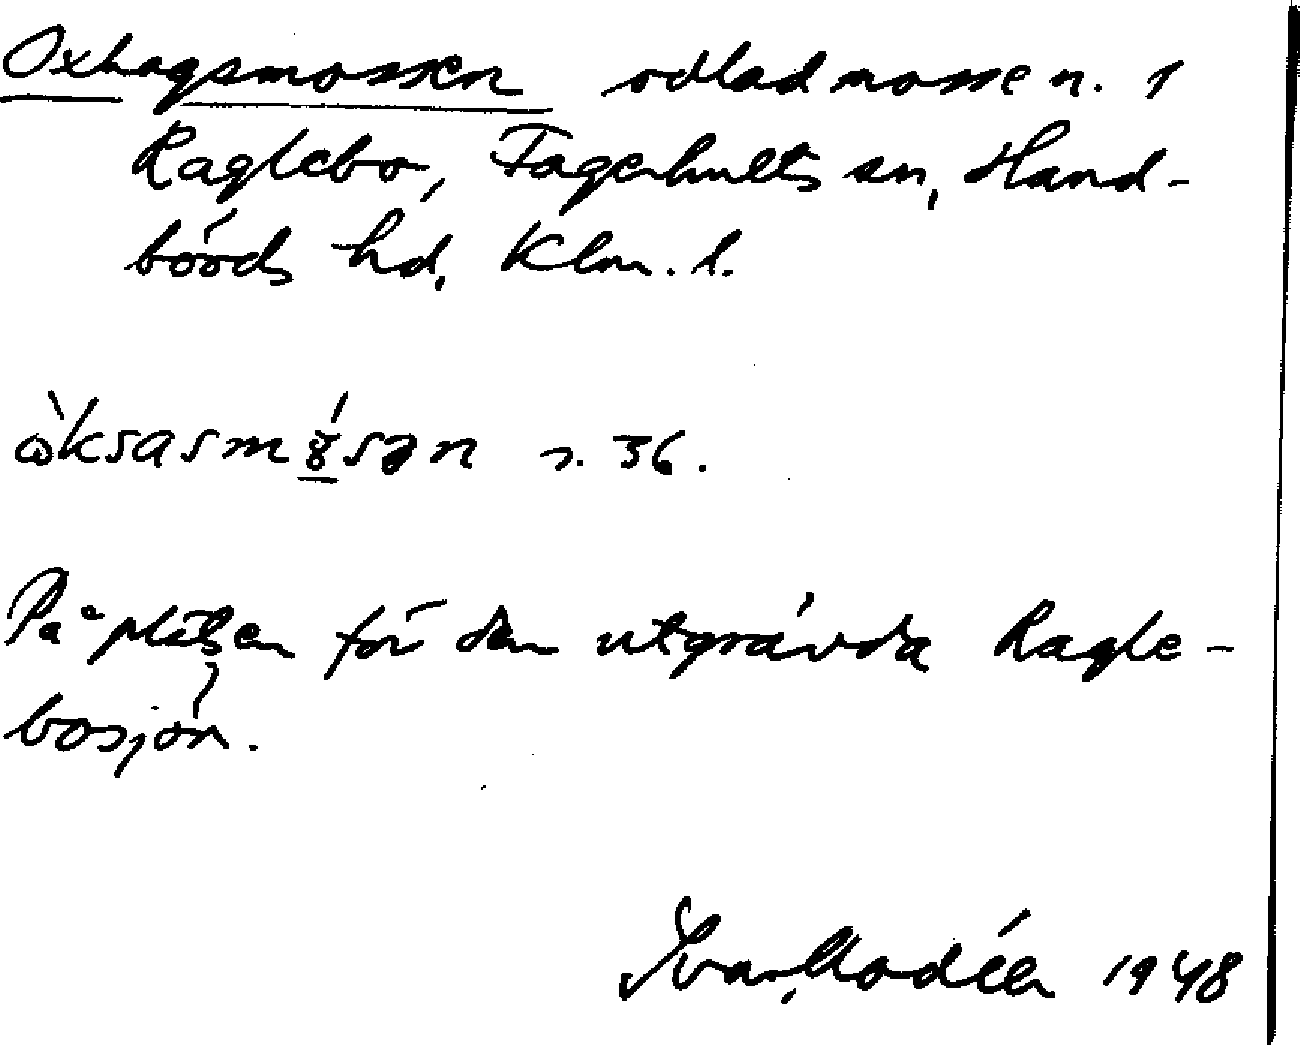 Oxhagsmossen odlad mosse n. 1
Raglebo, Fagerhults sn, Hand-
börds hd, Klm. l.
ὼksasmɤ́sən s. 36.
På platsen för den utgrävda Ragle-
bosjön.
Ivar Modéer 1948